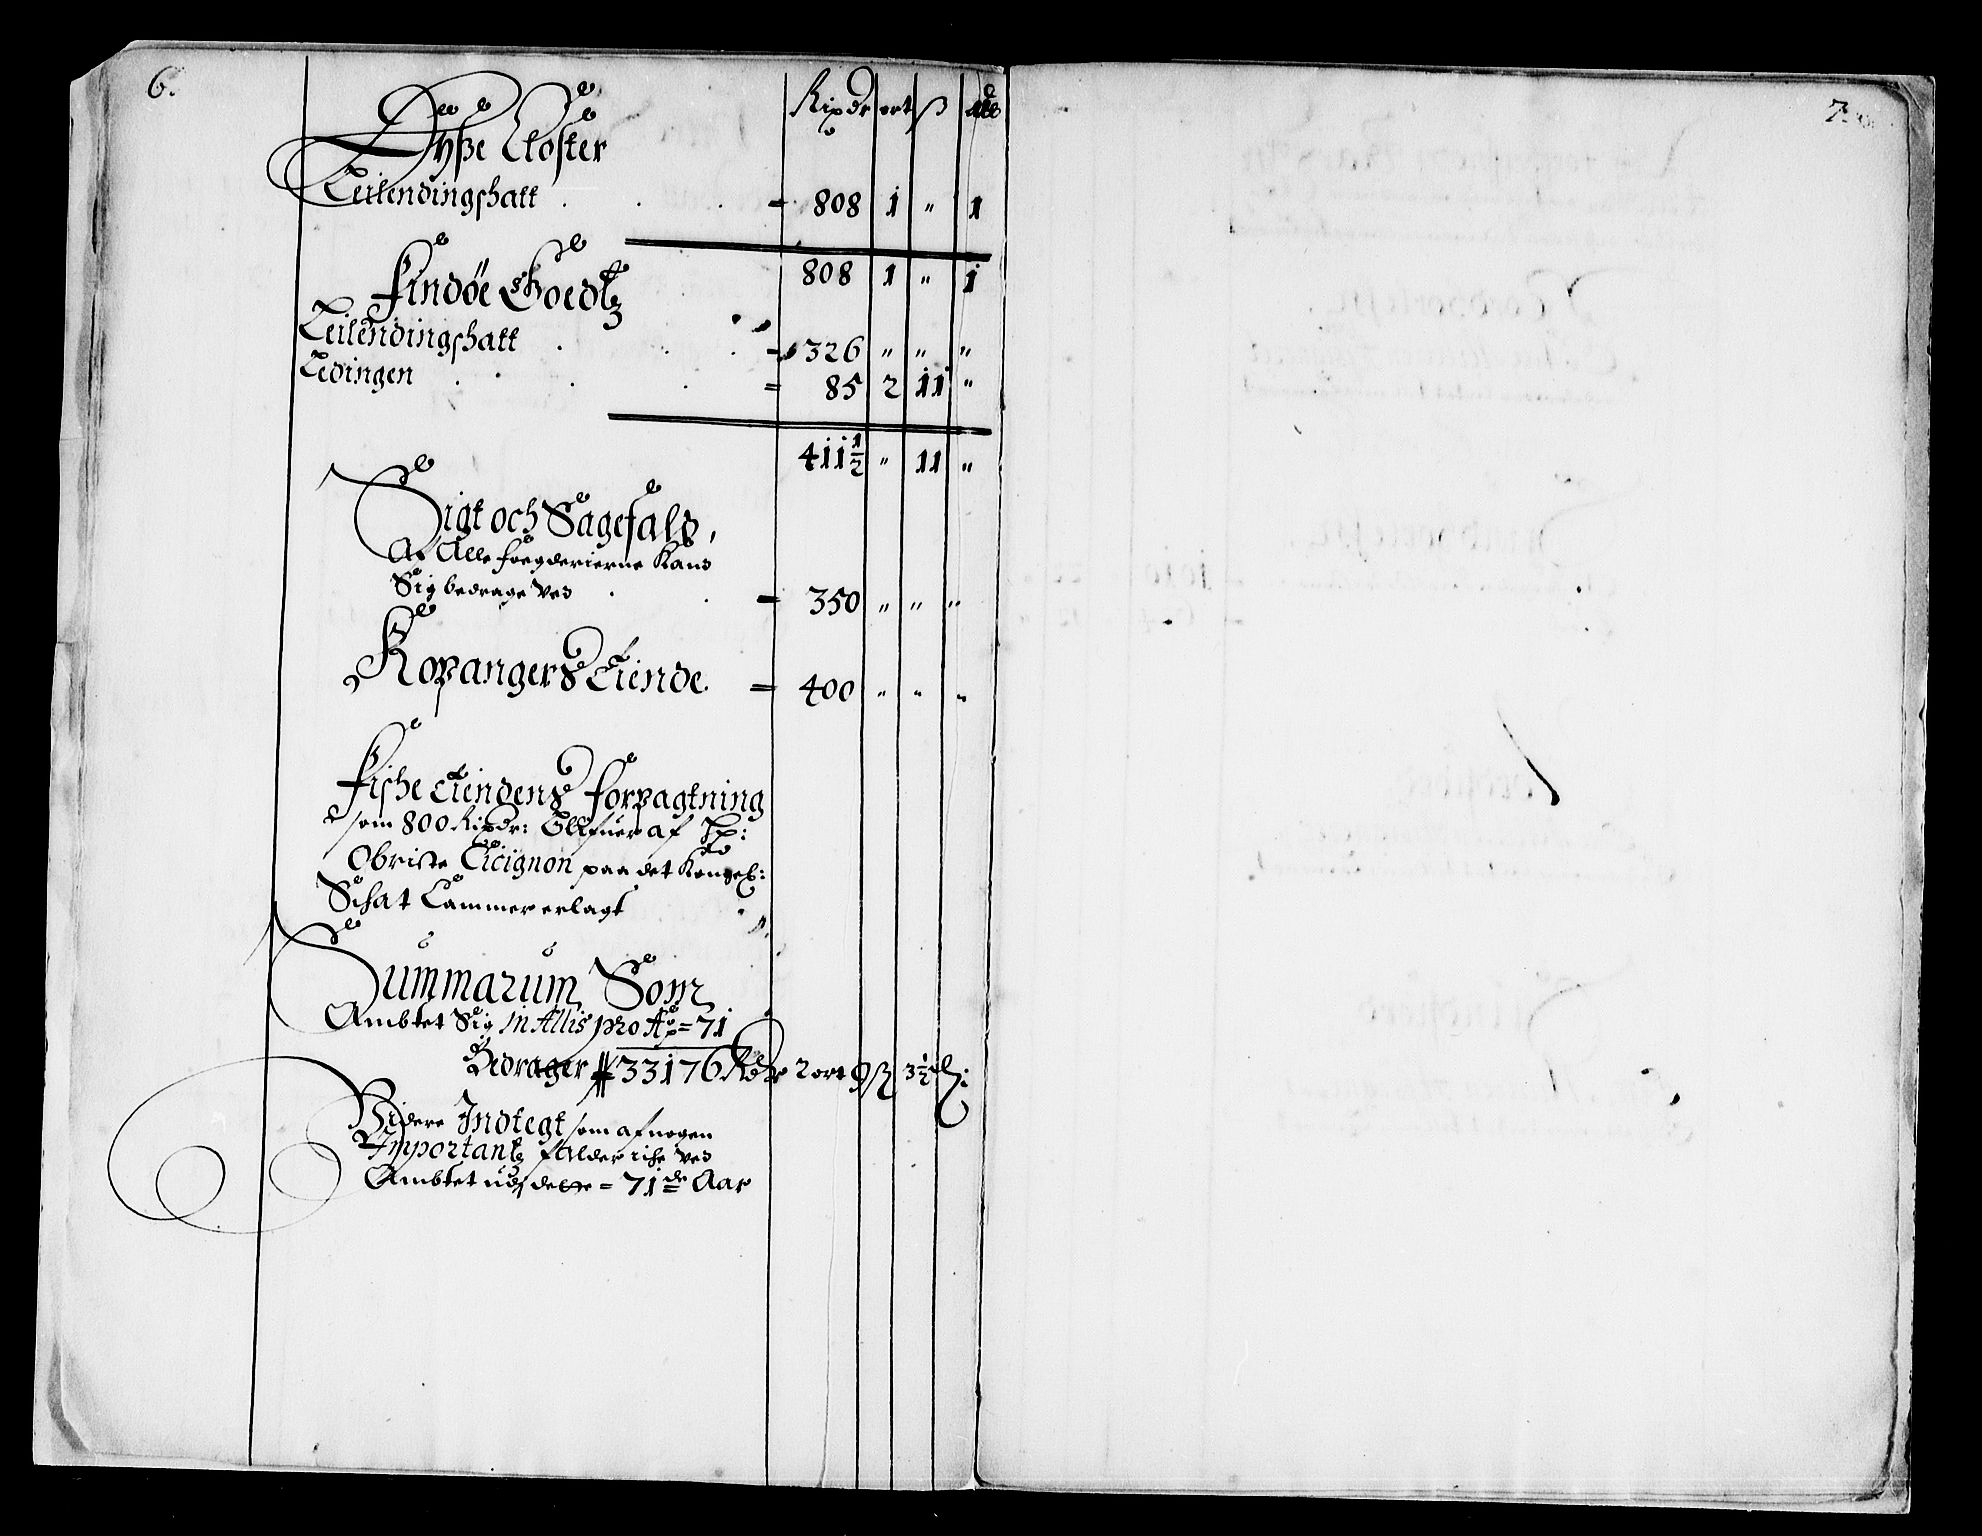 6.
Rixdr ort ß
Lyße Closter
Leilendingshatt . . . = 808 1 " 1
808 1 " 1
Findøe Goedtz
Leilendingshatt . . . = 326 " " "
Ledingen . . . = 85 2 11 "
411½ " 11 "
Sigt och Sagefald,
Af Alle foegderierne Kand
Sig bedrage Ved . . = 350 " " "
Kopangers Tiende. = 400 " " "
Fishe Tiendens Forpagtning
som 800 Rixdr: af Hr:
Obriste Cicignon paa det Kongel:
Schat Cammer erlagt
Summarum Som
Ambtet Sig In Allis pro Ao = 71
Bedrager 33176 Rdr 2 ort 9 ß 3½
Videre Indtegt som af nogen
Importantz falder iche Ved
Ambtet udj dette = 71de Aar
7.